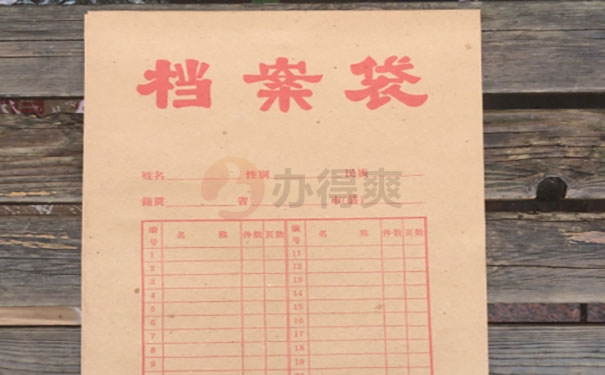 档案袋
姓名 性别 民族
办得爽
籍贯 省 市县
编号 名 称 件数 页数 编号 名 称 件数 页数
1 11
2 12
3 13
4 14
5 15
6 16
7 17
8 18
9 19